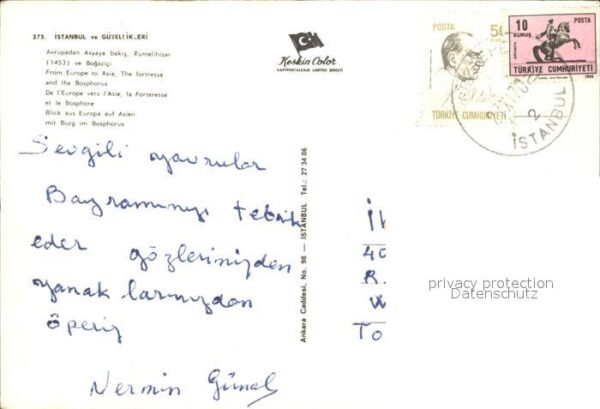 375. İSTANBUL ve GÜZELLİKLERİ
Avrupadan Asyaya bakış, Rumelihisar
(1453) ve Boğaziçi
From Europe to Asia, The fortresse
and the Bosphorus
De l'Europe vers l'Asie, la Forteresse
et le Bosphore
Blick aus Europa auf Asien
mit Burg im Bosphorus
Keskin Color
KARTPOSTALCILIK LİMİTED ŞİRKETİ
POSTA 50
TÜRKİYE CUMHURİYETİ
10 KURUŞ POSTA
TÜRKİYE CUMHURİYETİ
1968
2
İSTANBUL
Sevgili yavrular
Bayramınızı tebrik
eder gözlerinizden
yanaklarınızdan
öperiz
Nermin Günel
Ankara Caddesi, No. 98 — İSTANBUL Tel.: 27 34 06
40
R.
To
privacy protection
Datenschutz